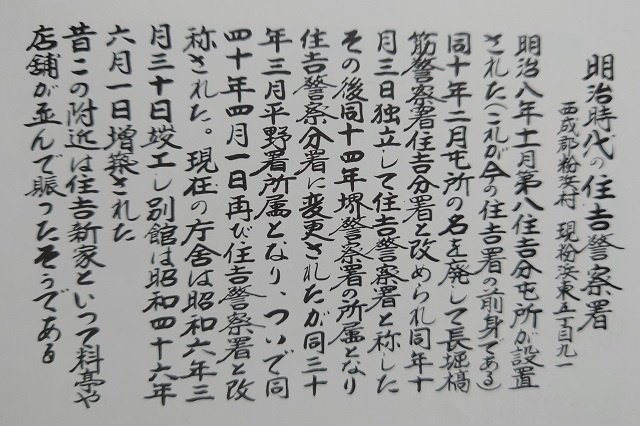 明治時代の住吉警察署
西成郡粉浜村 現粉浜東五丁目九一
明治八年十一月第八住吉分屯所が設置
された(これが今の住吉署の前身である)
同十年二月屯所の名を廃して長堀橋
筋警察署住吉分署と改められ同年十
月三日独立して住吉警察署と称した
その後同十四年堺警察署の所属となり
住吉警察分署に変更されたが同三十
年三月平野署所属となり、ついで同
四十年四月一日再び住吉警察署と改
称された。現在の庁舎は昭和六年三
月三十日竣工し別館は昭和四十六年
六月一日増築された
昔この附近は住吉新家といって料亭や
店舗が並んで賑ったそうである